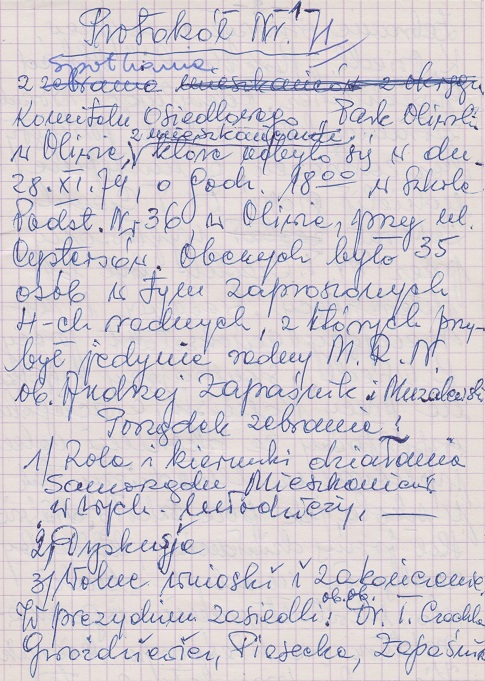 Protokół Nr. 1
spotkania
z zebrania mieszkańców z okręgu
Komitetu Osiedlowego, Park Oliwski
w Oliwie, z mieszkańcami
które odbyło się w dn.
28.XI.74, o godz. 18⁰⁰ w Szkole
Podst. Nr 36 w Oliwie, przy ul.
Cystersów. Obecnych było 35
osób w tym zaproszonych
4-ch radnych, z których przy-
był jedynie radny M.R.N.
ob. Andrzej Zapaśnik i
Porządek zebrania:
1/ Rola i kierunki działania
Samorządu Mieszkańców
w wych. młodzieży,
2/ Dyskusja
3/ Wolne wnioski i zakończenie
W prezydium zasiedli: ob.ob. Dr. T.
Piasecka, Zapaśnik